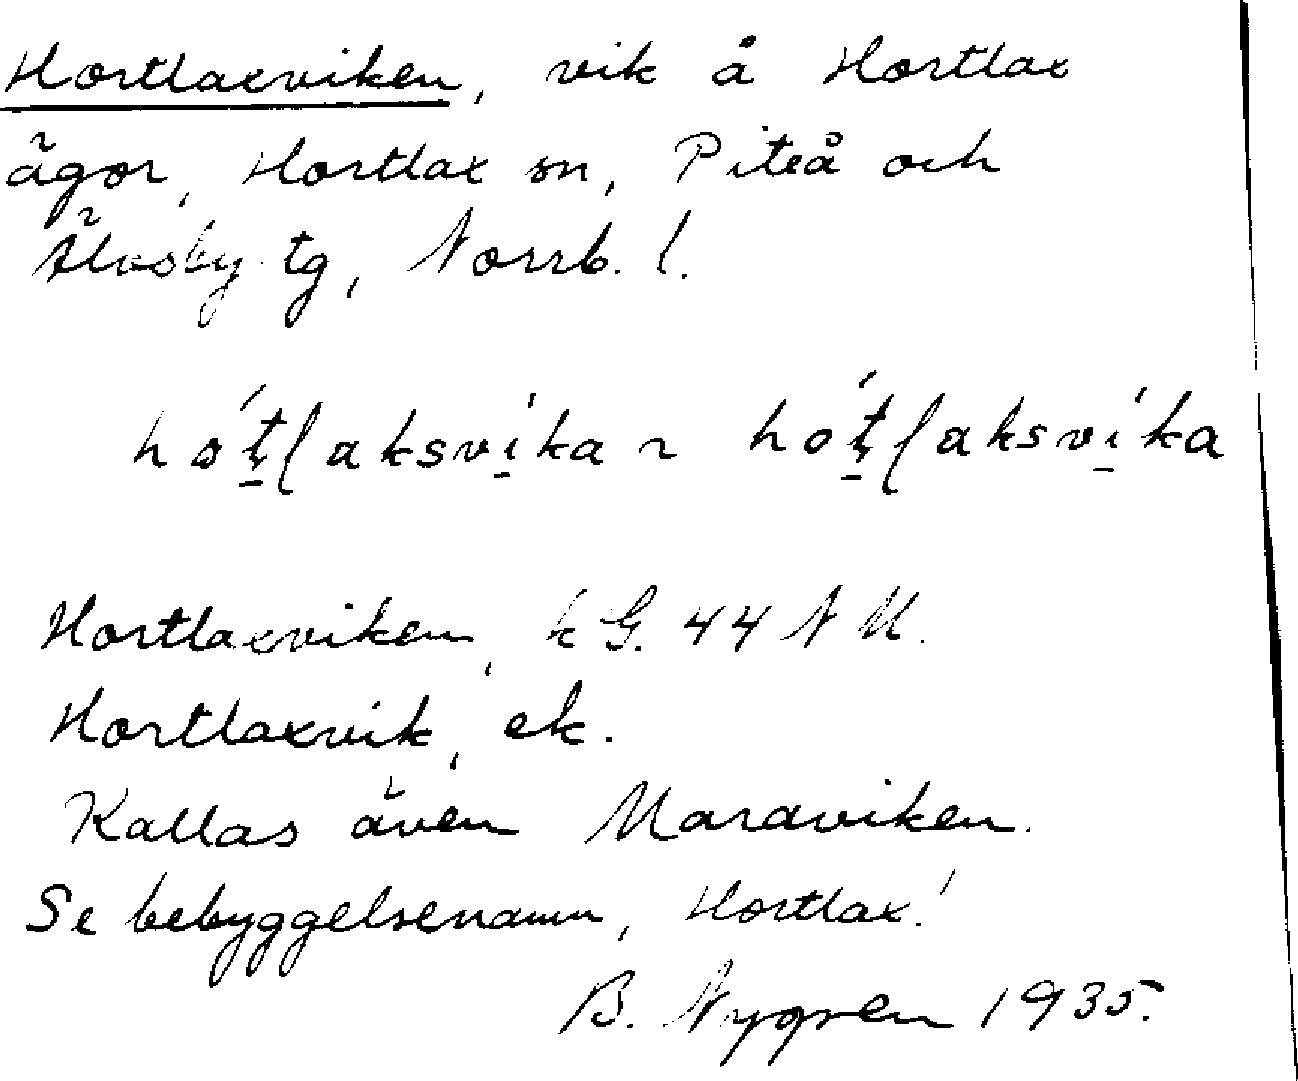 Hortlaxviken, vik å Hortlax
ägor, Hortlax sn, Piteå och
Älvsby tg, Norrb. l.
hó̱tʃaksví̱ka ~ hó̱tʃaksví̱ka
Hortlaxviken, kG. 44 N M.
Hortlaxvik, ek.
Kallas även Maraviken.
Se bebyggelsenamn, Hortlax!
B. Nygren 1935.